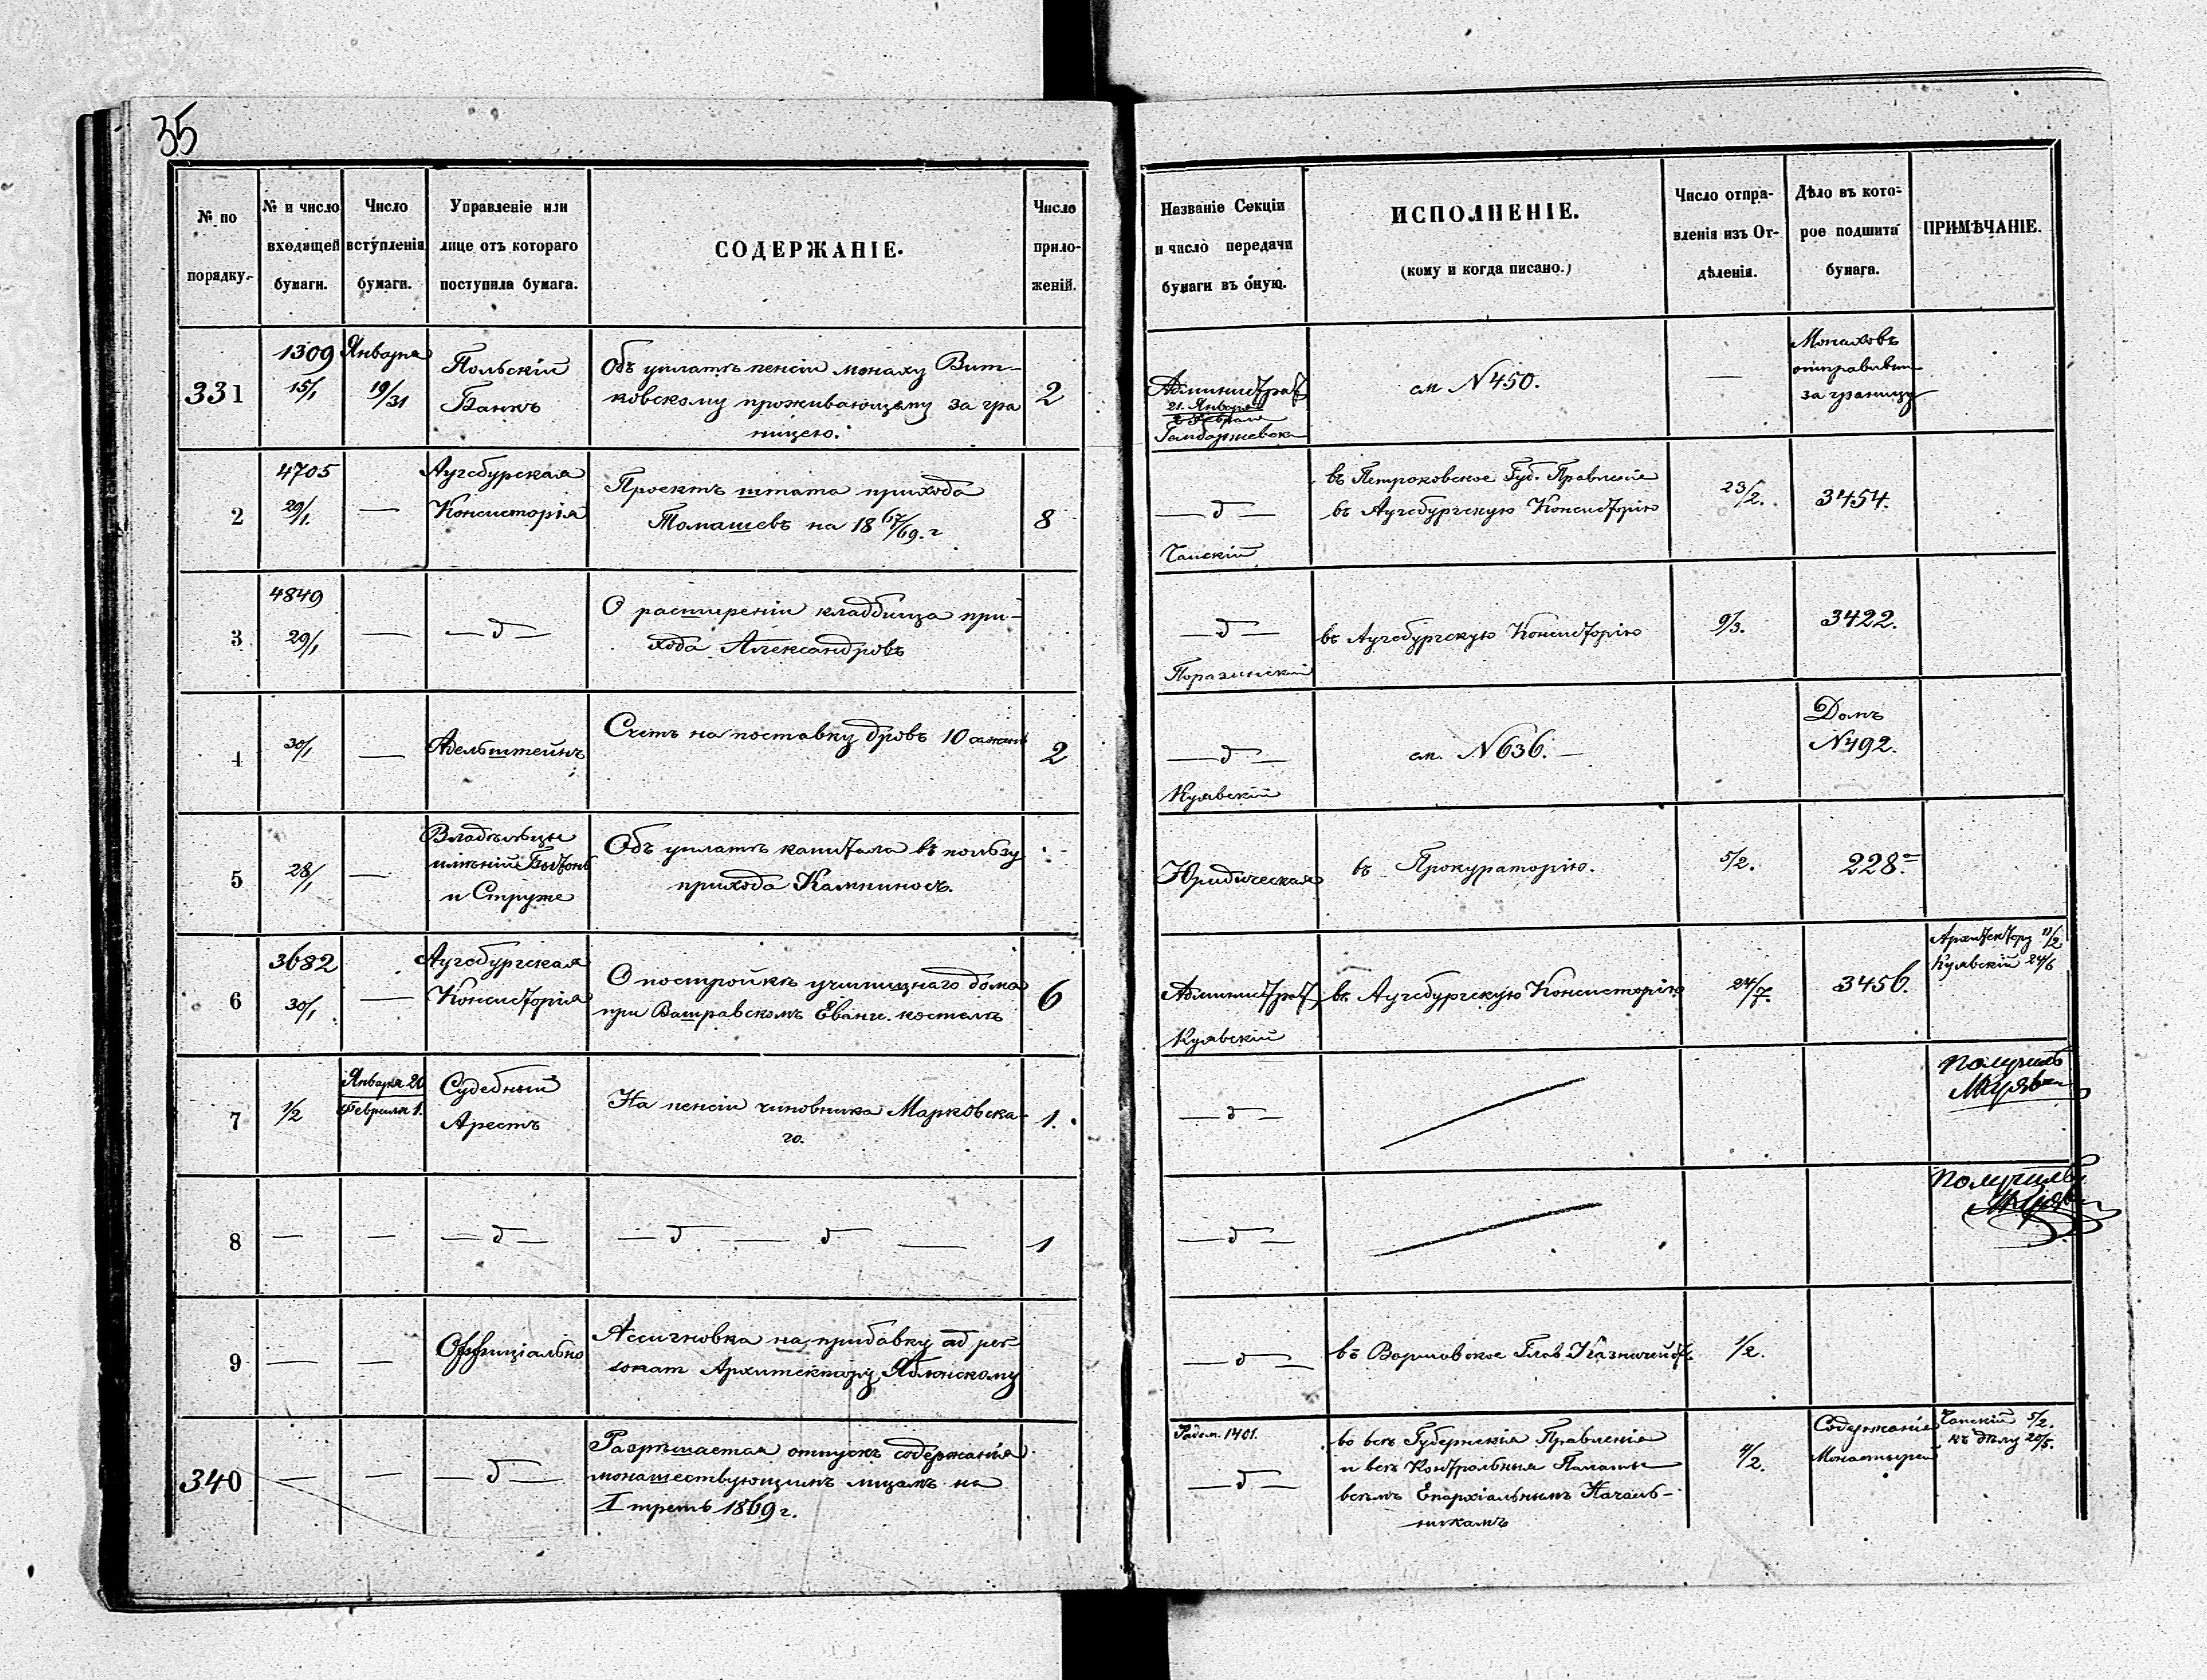 35
№ по порядку.
№ и число входящей бумаги.
Число вступленія бумаги.
Управленіе или лице отъ котораго поступила бумага.
СОДЕРЖАНІЕ.
Число приложеній.
Названіе Секціи и число передачи бумаги въ оную.
ИСПОЛНЕНІЕ.
(кому и когда писано.)
Число отправленія изъ Отдѣленія.
Дѣло въ которое подшита бумага.
ПРИМѢЧАНІЕ.
331
1309
15/1
Января
19/31
Польскій
Банкъ
Объ уплатѣ пенсіи монаху Вит-
ковскому проживающему за гра
ницею.
2
Администрат
21. Января
2 Февраля
см N 450.
—
Монаховъ
за границу
2
4705
29/1.
—
Аугсбургская
Консисторія
Проектъ штата прихода
Томашевъ на 18 67/69. г
8
— д —
Чапскій
въ Петроковское Губ. Правленіе
въ Аугсбургскую Консисторію
23/2.
3454.
3
4849
29/1
—
— д —
О расширеніи кладбища при-
хода Александровъ
— д —
Поразинскій
въ Аугсбургскую Консисторію
9/3.
3422.
4
30/1
—
Адельштейнъ
Счетъ на поставку дровъ 10 сажень
2
— д —
Куявскій
см. N 636. —
Домъ
N 492.
5
28/1
—
Владѣльцы
имѣній
и Струже
Объ уплатѣ капитала въ пользу
прихода Кампиносъ.
Юридическая
въ Прокураторію.
5/2.
228.
6
3682
30/1
—
Аугсбургская
Консисторія
О постройкѣ училищнаго дома
при Варшавскомъ Еванге. костелѣ
6
Администрат
Куявскій
въ Аугсбургскую Консисторію
24/7.
3456.
Архитектору 11/2
Куявскій 24/6
7
1/2
Января 20
Февраля 1.
Судебный
Арестъ
На пенсіи чиновника Марковска-
го.
1.
— д —
Получилъ
8
—
—
— д —
— д — д —
1
— д —
Получилъ
9
—
—
Оффиціально
Ассигновка на прибавку ad per-
sonam Архитектору Яблонскому
— д —
въ Варшавское Глав Казначейст.
1/2.
340
—
—
— д —
Разрѣшается отпускъ содержанія
монашествующимъ лицамъ на
I треть 1869 г.
Радом. 1401.
— д —
во всѣ Губернскія Правленія
и всѣ Контрольныя Палаты
всѣмъ Епархіальнымъ Началь-
никамъ
4/2.
Содержаніе
Монастырей
Чапскій 5/2.
къ дѣлу 20/5.